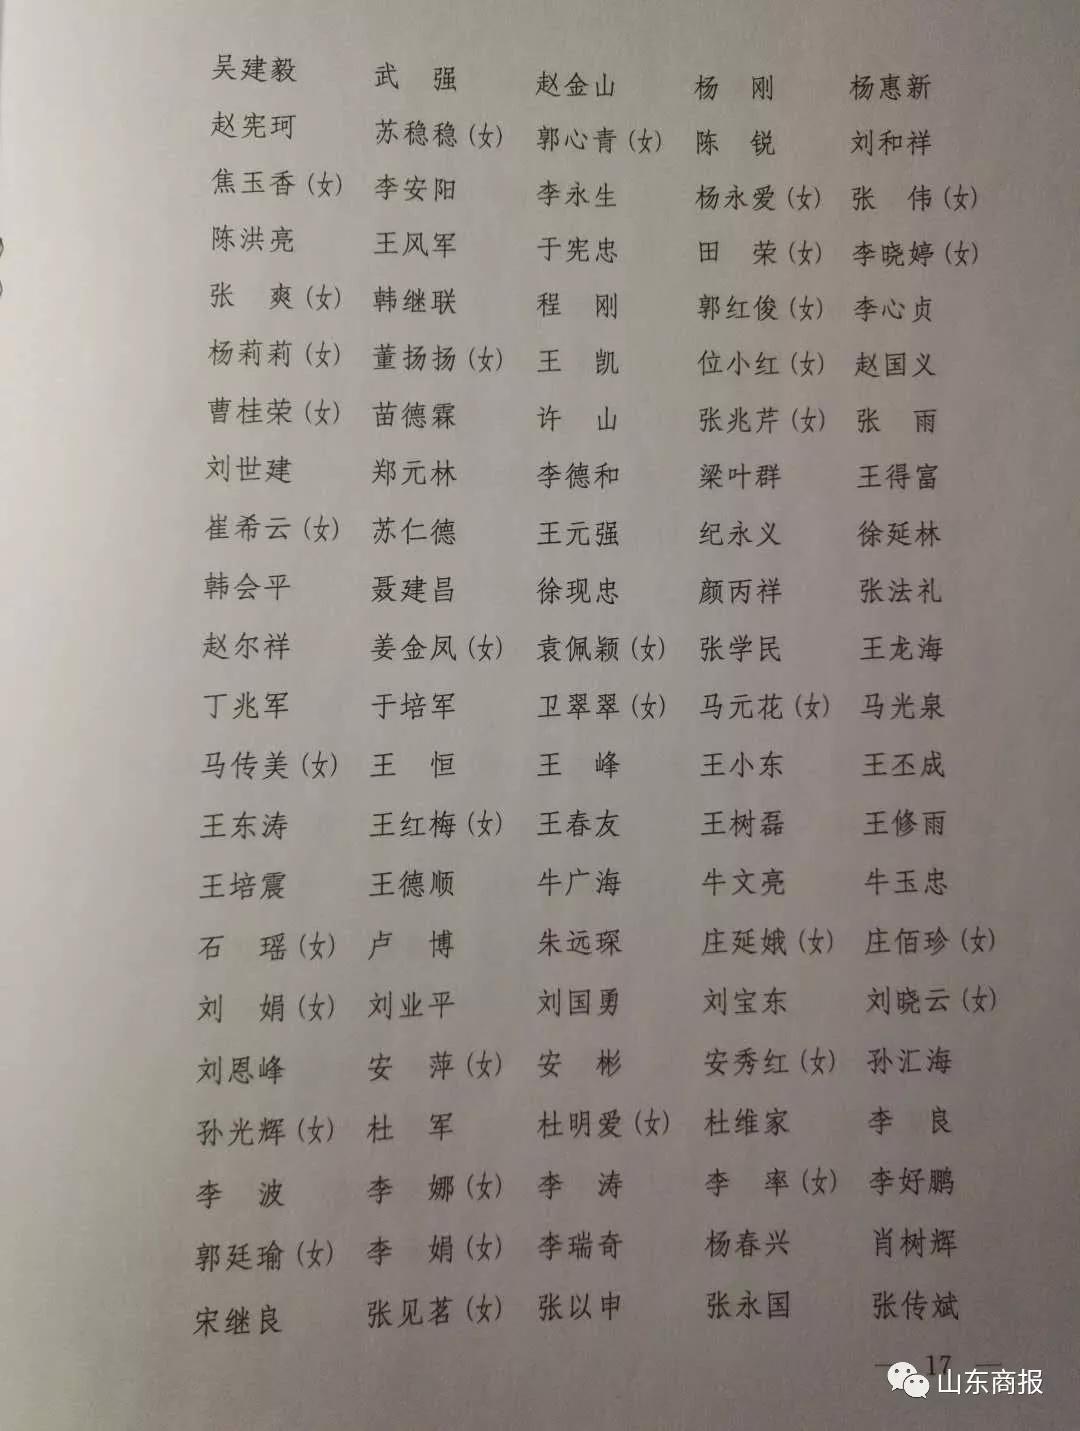 吴建毅 武　强 赵金山 杨　刚 杨惠新
赵宪珂 苏稳稳(女) 郭心青(女) 陈　锐 刘和祥
焦玉香(女) 李安阳 李永生 杨永爱(女) 张　伟(女)
陈洪亮 王风军 于宪忠 田　荣(女) 李晓婷(女)
张　爽(女) 韩继联 程　刚 郭红俊(女) 李心贞
杨莉莉(女) 董扬扬(女) 王　凯 位小红(女) 赵国义
曹桂荣(女) 苗德霖 许　山 张兆芹(女) 张　雨
刘世建 郑元林 李德和 梁叶群 王得富
崔希云(女) 苏仁德 王元强 纪永义 徐延林
韩会平 聂建昌 徐现忠 颜丙祥 张法礼
赵尔祥 姜金凤(女) 袁佩颖(女) 张学民 王龙海
丁兆军 于培军 卫翠翠(女) 马元花(女) 马光泉
马传美(女) 王　恒 王　峰 王小东 王丕成
王东涛 王红梅(女) 王春友 王树磊 王修雨
王培震 王德顺 牛广海 牛文亮 牛玉忠
石　瑶(女) 卢　博 朱远琛 庄延娥(女) 庄佰珍(女)
刘　娟(女) 刘业平 刘国勇 刘宝东 刘晓云(女)
刘恩峰 安　萍(女) 安　彬 安秀红(女) 孙汇海
孙光辉(女) 杜　军 杜明爱(女) 杜维家 李　良
李　波 李　娜(女) 李　涛 李　率(女) 李好鹏
郭廷瑜(女) 李　娟(女) 李瑞奇 杨春兴 肖树辉
宋继良 张见茗(女) 张以申 张永国 张传斌
— 17 —
山东商报